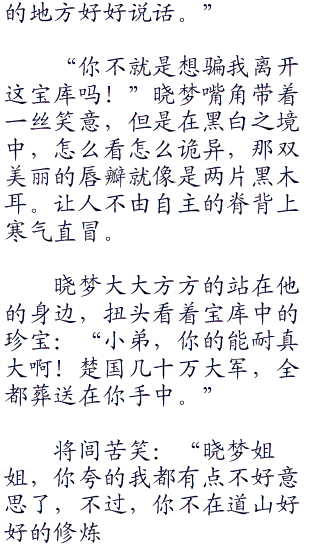 的地方好好说话。”
“你不就是想骗我离开
这宝库吗！”晓梦嘴角带着
一丝笑意，但是在黑白之境
中，怎么看怎么诡异，那双
美丽的唇瓣就像是两片黑木
耳。让人不由自主的脊背上
寒气直冒。
晓梦大大方方的站在他
的身边，扭头看着宝库中的
珍宝：“小弟，你的能耐真
大啊！楚国几十万大军，全
都葬送在你手中。”
将闾苦笑：“晓梦姐
姐，你夸的我都有点不好意
思了，不过，你不在道山好
好的修炼